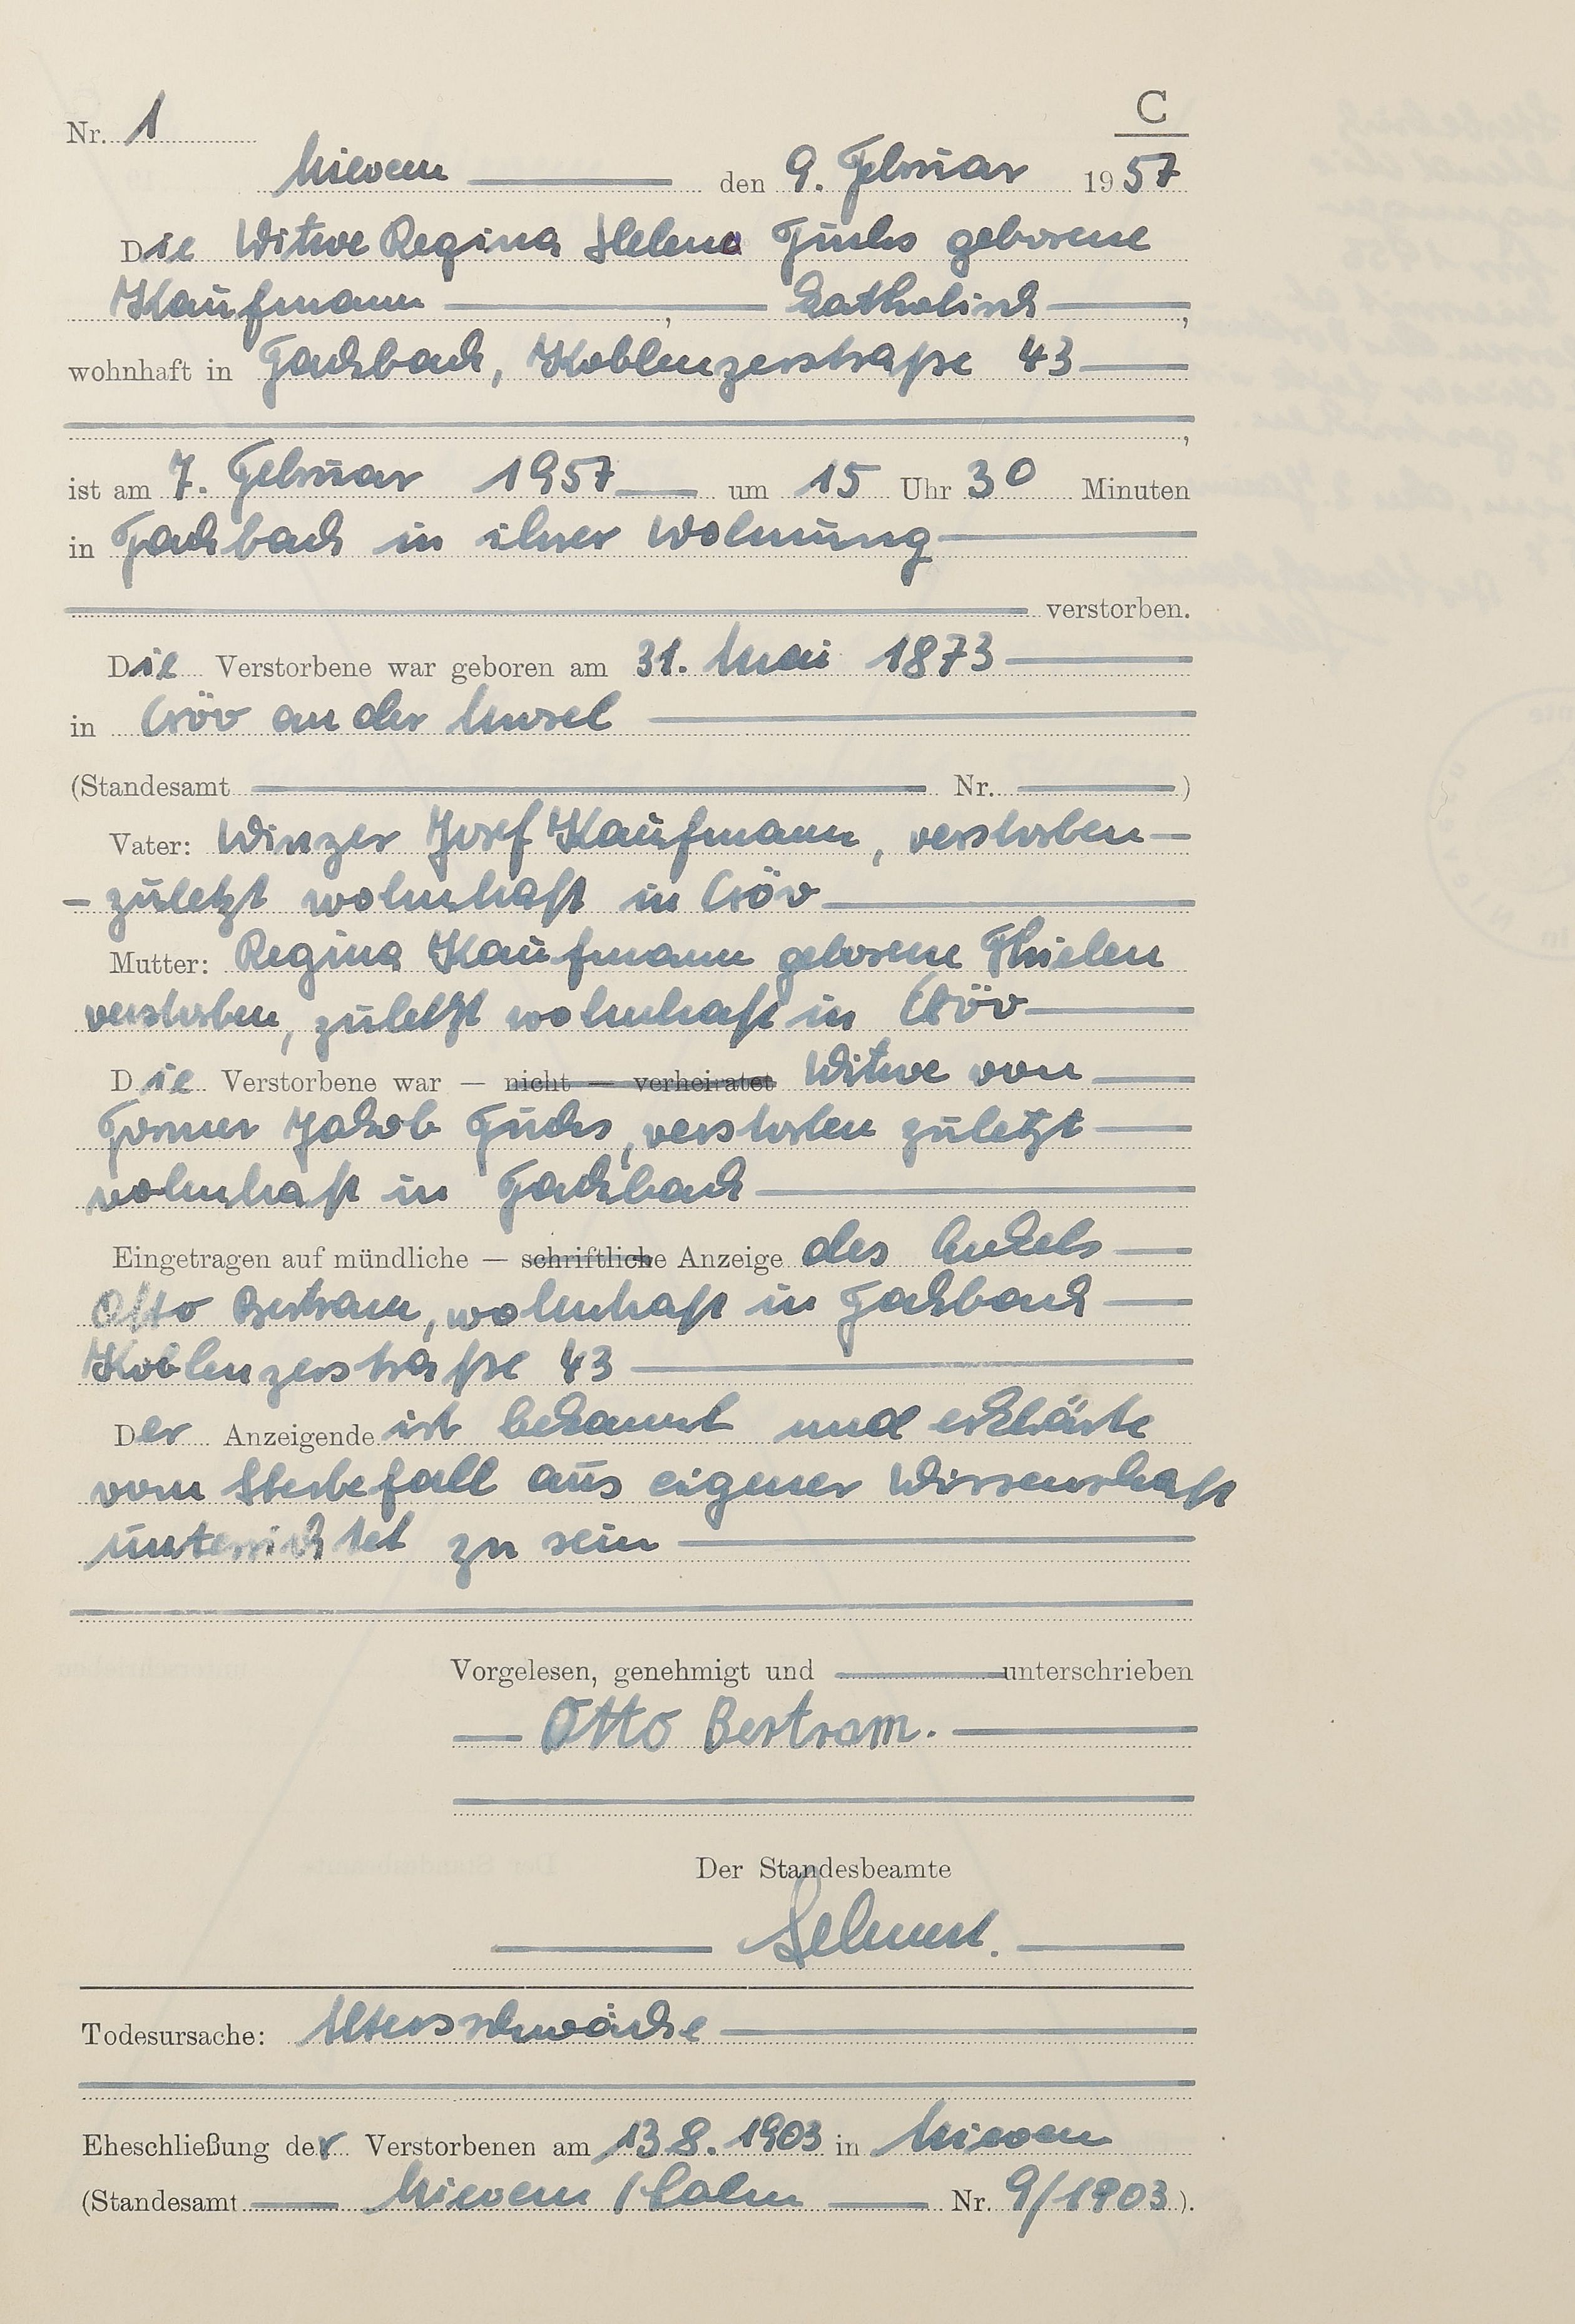 C
Nr. 1
Nievern den 9. Februar 1957
Die Witwe Regina Helena Fuchs geborene
Kaufmann, katholisch,
wohnhaft in Fachbach, Koblenzerstraße 43
,
ist am 7. Februar 1957 um 15 Uhr 30 Minuten
in Fachbach in ihrer Wohnung
verstorben.
Die Verstorbene war geboren am 31. Mai 1873
in Cröv an der Mosel
(Standesamt Nr. )
Vater: Winzer Josef Kaufmann, verstorben
- zuletzt wohnhaft in Cröv
Mutter: Regina Kaufmann geborene Thielen
verstorben, zuletzt wohnhaft in Cröv
Die Verstorbene war — nicht — verheiratet Witwe von
Former Jakob Fuchs, verstorben zuletzt
wohnhaft in Fachbach
Eingetragen auf mündliche — schriftliche Anzeige des Enkels
Otto Bertram, wohnhaft in Fachbach
Koblenzerstraße 43
Der Anzeigende ist bekannt und erklärte
vom Sterbefall aus eigener Wissenschaft
unterrichtet zu sein
Vorgelesen, genehmigt und unterschrieben
Otto Bertram.
Der Standesbeamte
Todesursache: Altersschwäche
Eheschließung der Verstorbenen am 13.8.1903 in Nievern
(Standesamt Nievern / Lahn Nr. 9/1903).